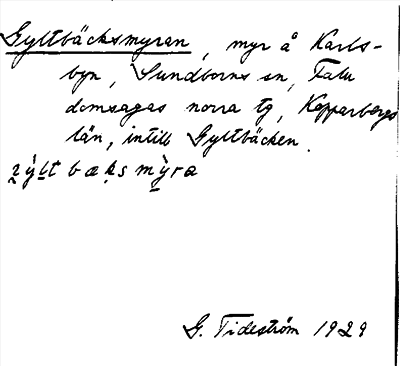 Gyltbäcksmyran, myr å Karls-
byn, Sundborns sn, Falu
domsagas norra tg, Kopparbergs
län, intill Gyltbäcken.
G. Tideström 1929